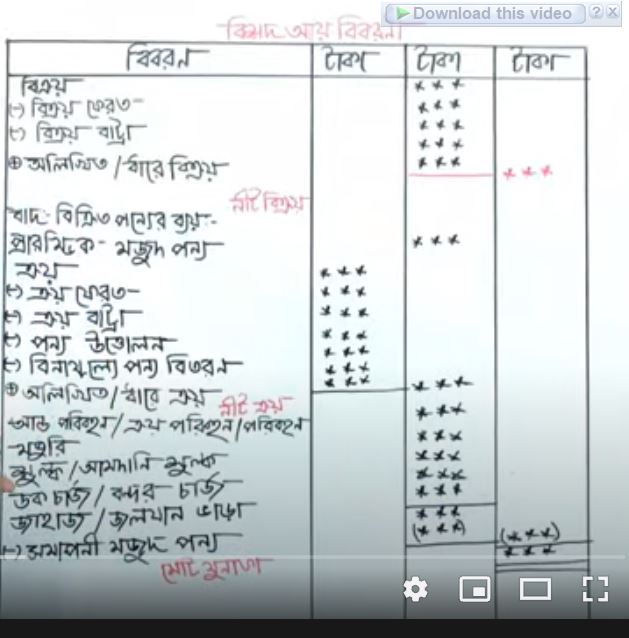 Download this video
বিশদ আয় বিবরনী
বিবরন টাকা টাকা টাকা
বিক্রয় * * *
(-) বিক্রয় ফেরত- * * *
(-) বিক্রয় বাট্টা * * *
* * *
⊕ অলিখিত/ধারে বিক্রয় * * * * * *
নীট বিক্রয়
বাদ- বিক্রিত পন্যের ব্যয়:-
প্রারম্ভিক- মজুদ পন্য * * *
ক্রয় * * *
(-) ক্রয় ফেরত- * * *
(-) ক্রয় বাট্টা * * *
(-) পন্য উত্তোলন * * *
(-) বিনামূল্যে পন্য বিতরন * * *
⊕ অলিখিত/ধারে ক্রয় * * * * * *
নীট ক্রয়
আন্ত পরিবহন/ক্রয় পরিবহন/পরিবহন * * *
মজুরি * * *
শুল্ক/আমদানি শুল্ক * * *
ডক চার্জ/বন্দর চার্জ * * *
জাহাজ/জলযান ভাড়া * * *
(-) সমাপনী মজুদ পন্য (* * *) (* * *)
মোট মুনাফা * * *